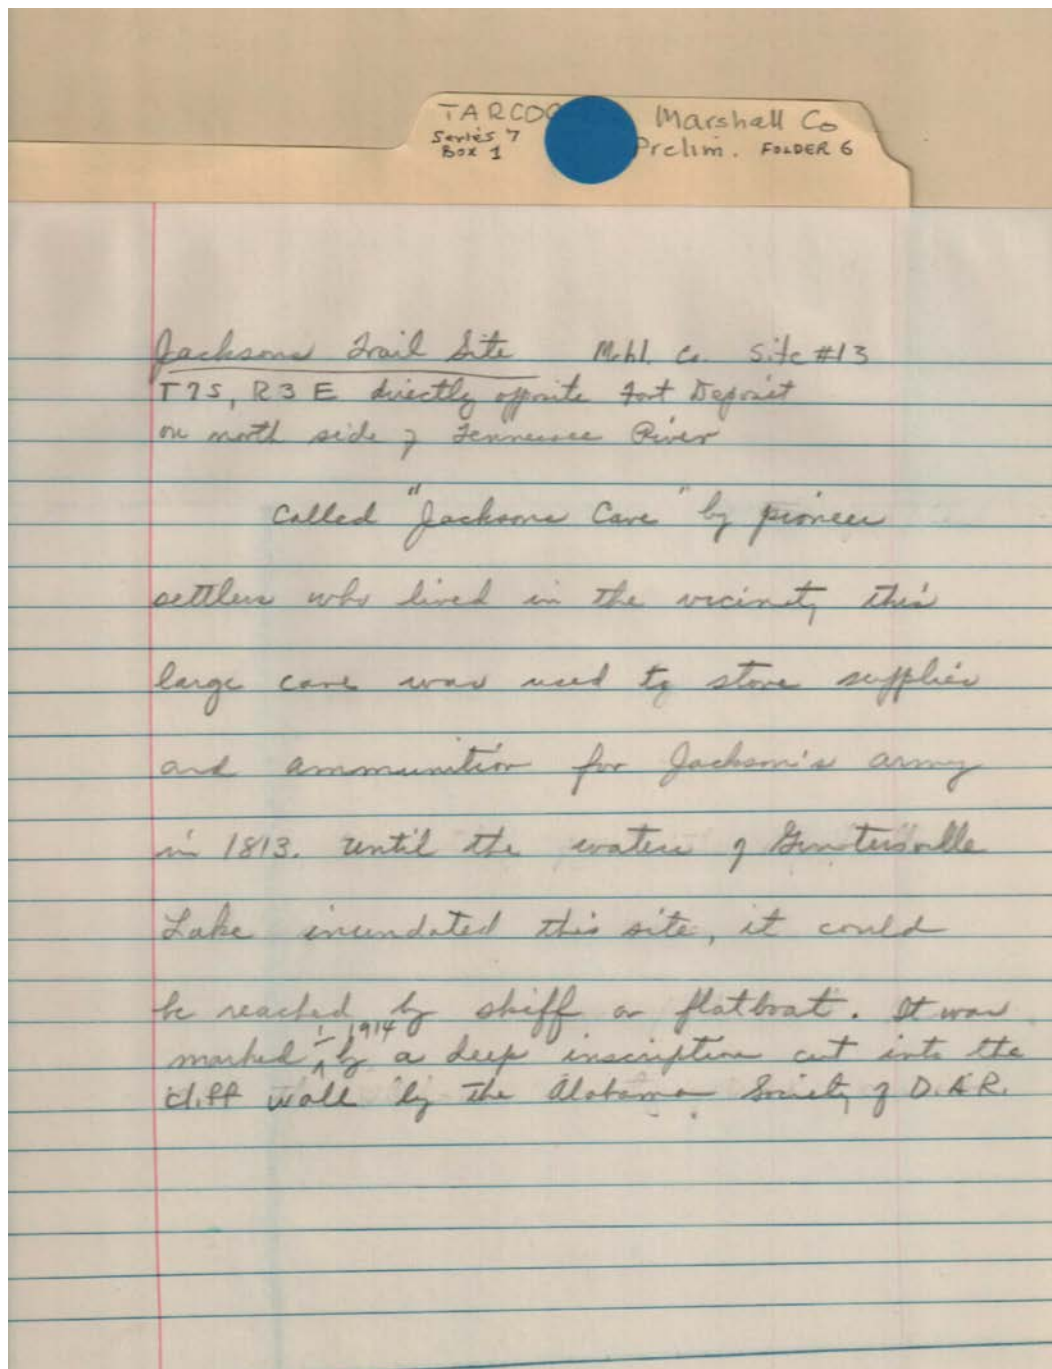 TARCOG
Marshall Co
Series 7
Box 1
Prelim. FOLDER 6
Jacksons Trail Site Mrhl. Co. Site #13
T7S, R3E directly opposite Fort Deposit
on north side of Tennessee River
Called "Jacksons Cave" by pioneer
settlers who lived in the vicinity this
large cave was used to store supplies
and ammunition for Jackson's army
in 1813. Until the waters of Guntersville
Lake inundated this site, it could
be reached by skiff or flatboat. It was
marked in 1914 by a deep inscription cut into the
cliff wall by the Alabama Society of D.A.R.